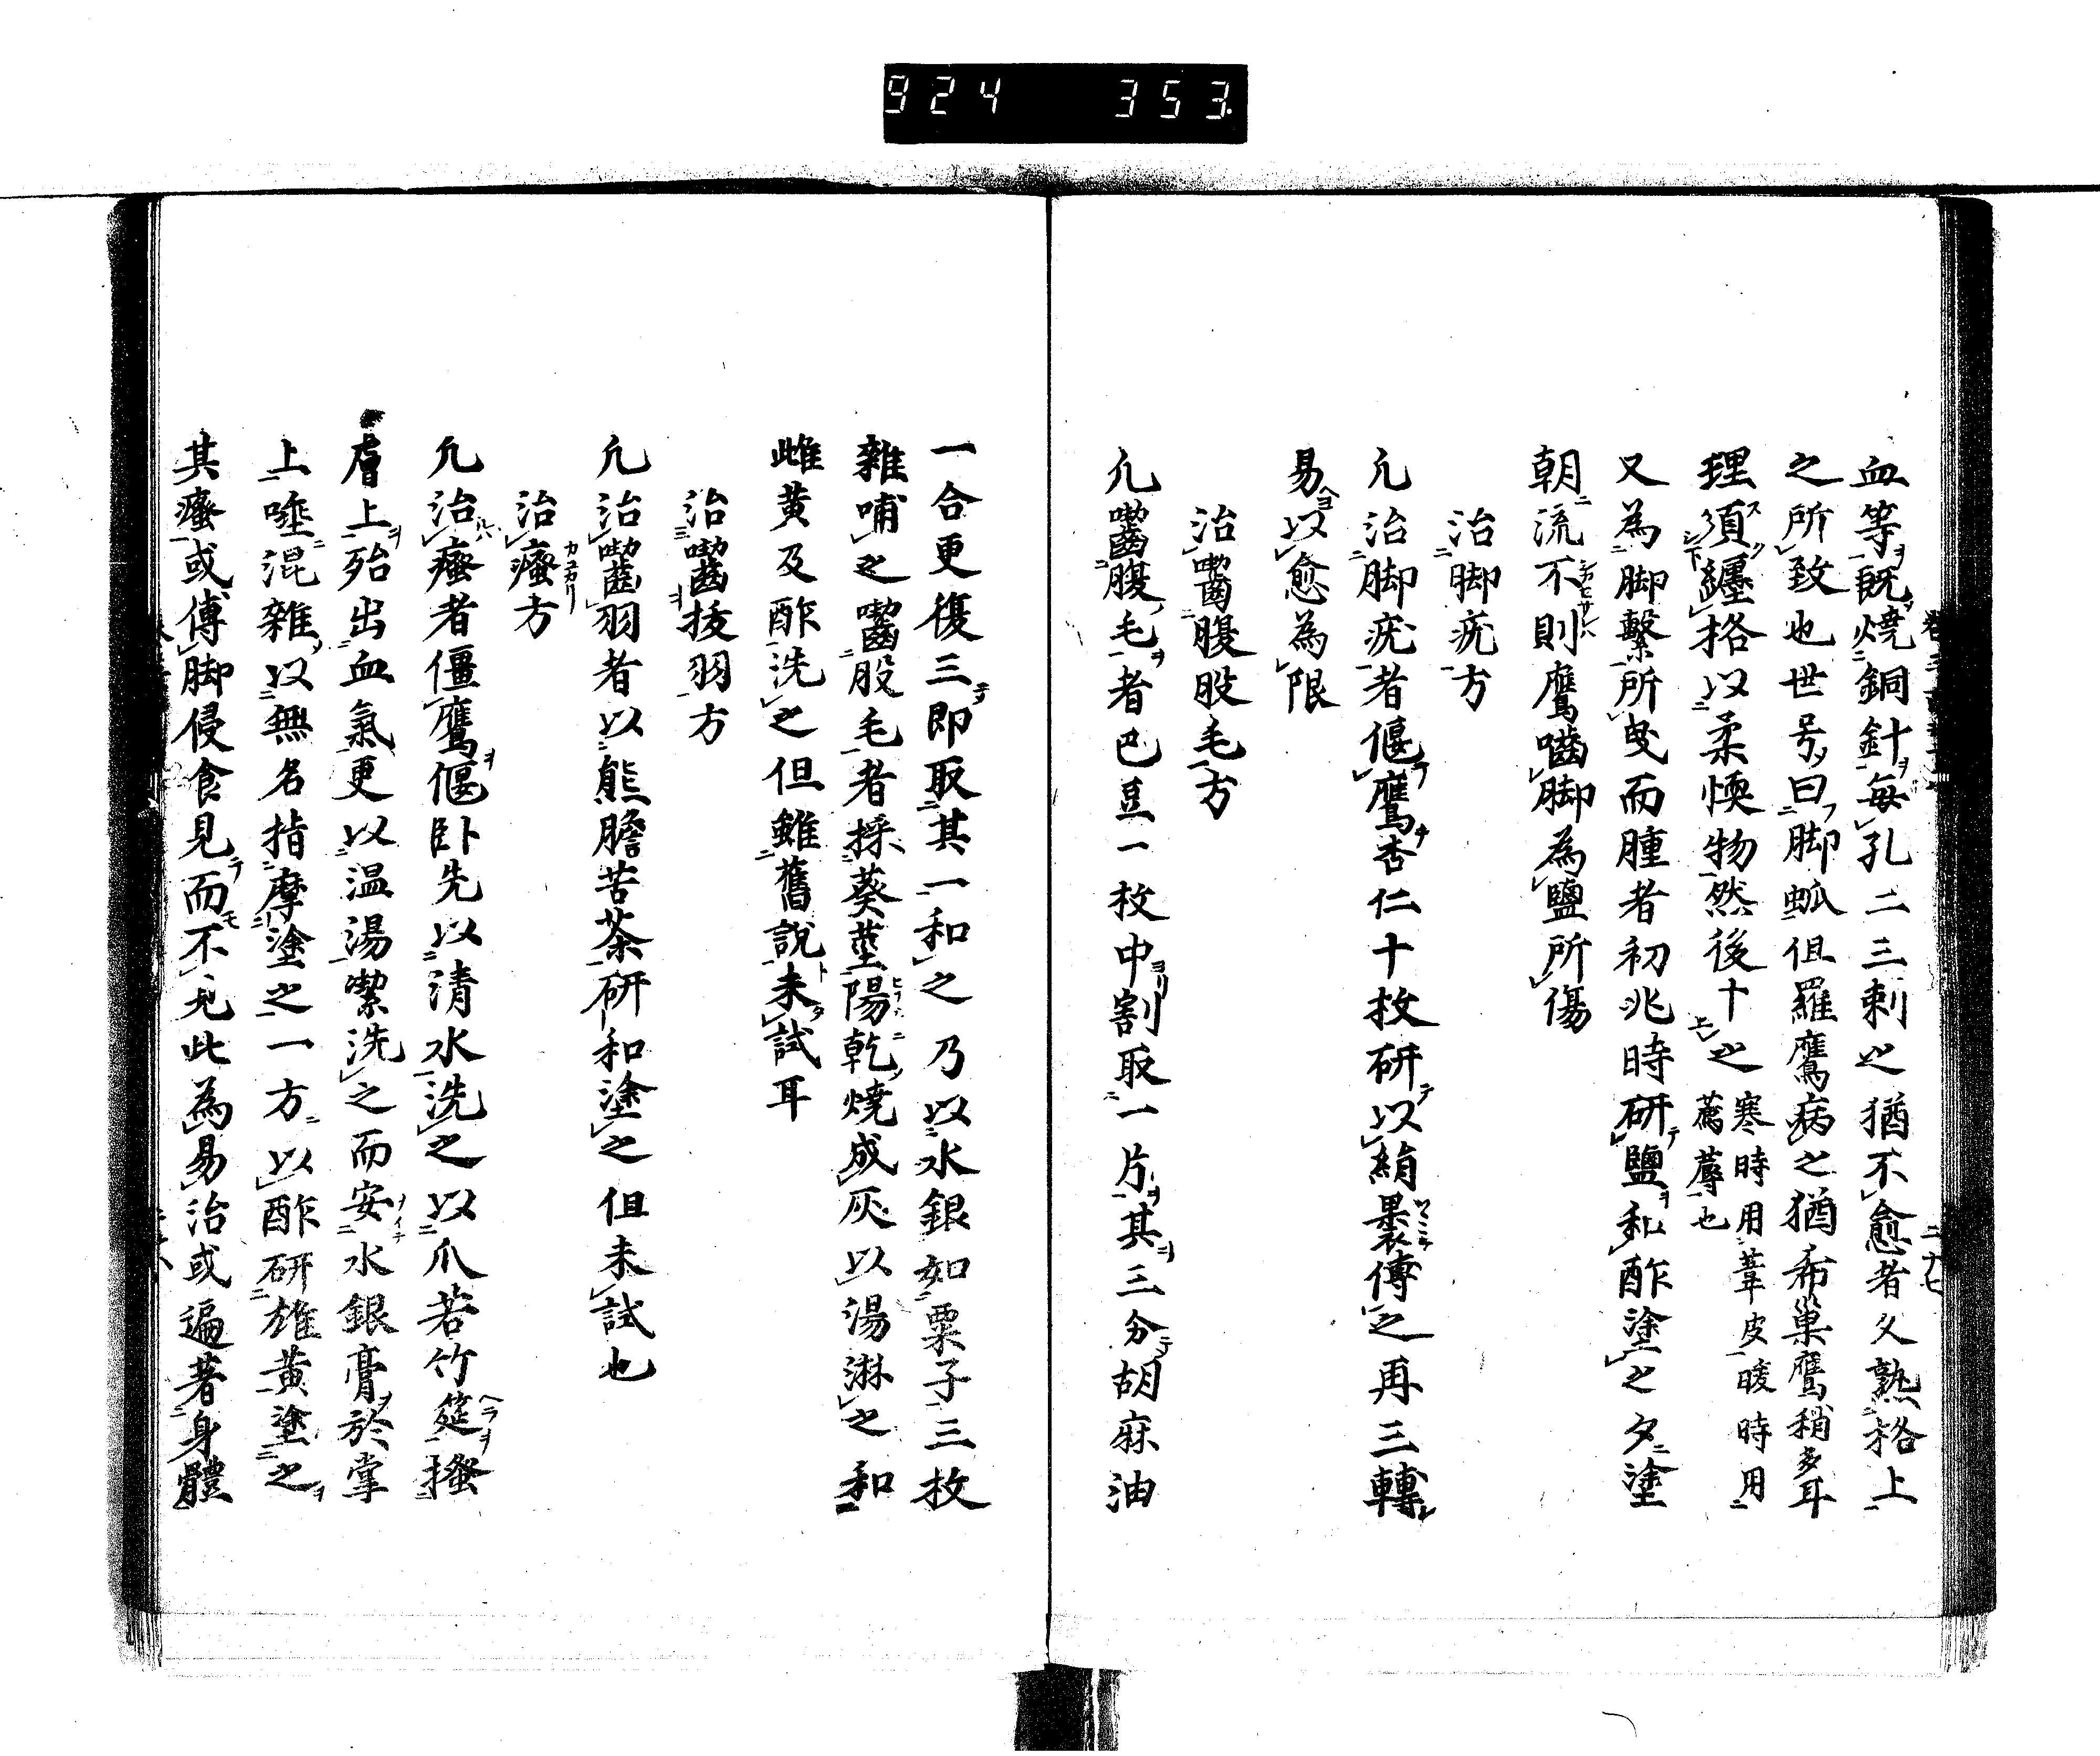 924 353
血等既燒銅針每孔二三刺之猶不愈者久熟格上
之所致也世号曰脚瓞但羅鷹病之猶希巢鷹稍多耳
理須纏格以柔愞物然後十之寒時用葦皮暖時用
薦蓐也
又為脚繫所曳而腫者初兆時研鹽和酢塗之夕塗
朝流不則鷹嚙脚為鹽所傷
治脚疣方
凡治脚疣者偃鷹杏仁十枚研以絹褁傅之再三轉
易以愈為限
治嚙腹股毛方
凡嚙腹毛者巴豆一枚中割取一片其三分胡麻油
一合更復三即取其一和之乃以水銀如粟子三枚
雜哺之嚙股毛者採葵莖陽乾燒成灰以湯淋之和
雌黄及酢洗之但雖舊說未試耳
治嚙㧞羽方
凡治嚙羽者以熊膽苦茶研和塗之但未試也
治瘙方
凡治瘙者僵鷹偃卧先以清水洗之以爪若竹筵搔
膚上殆出血氣更以温湯潔洗之而安水銀膏於掌
上唾混雜以無名指摩塗之一方以酢研雄黄塗之
其瘙或傅脚侵食見而不允此為易治或遍著身體